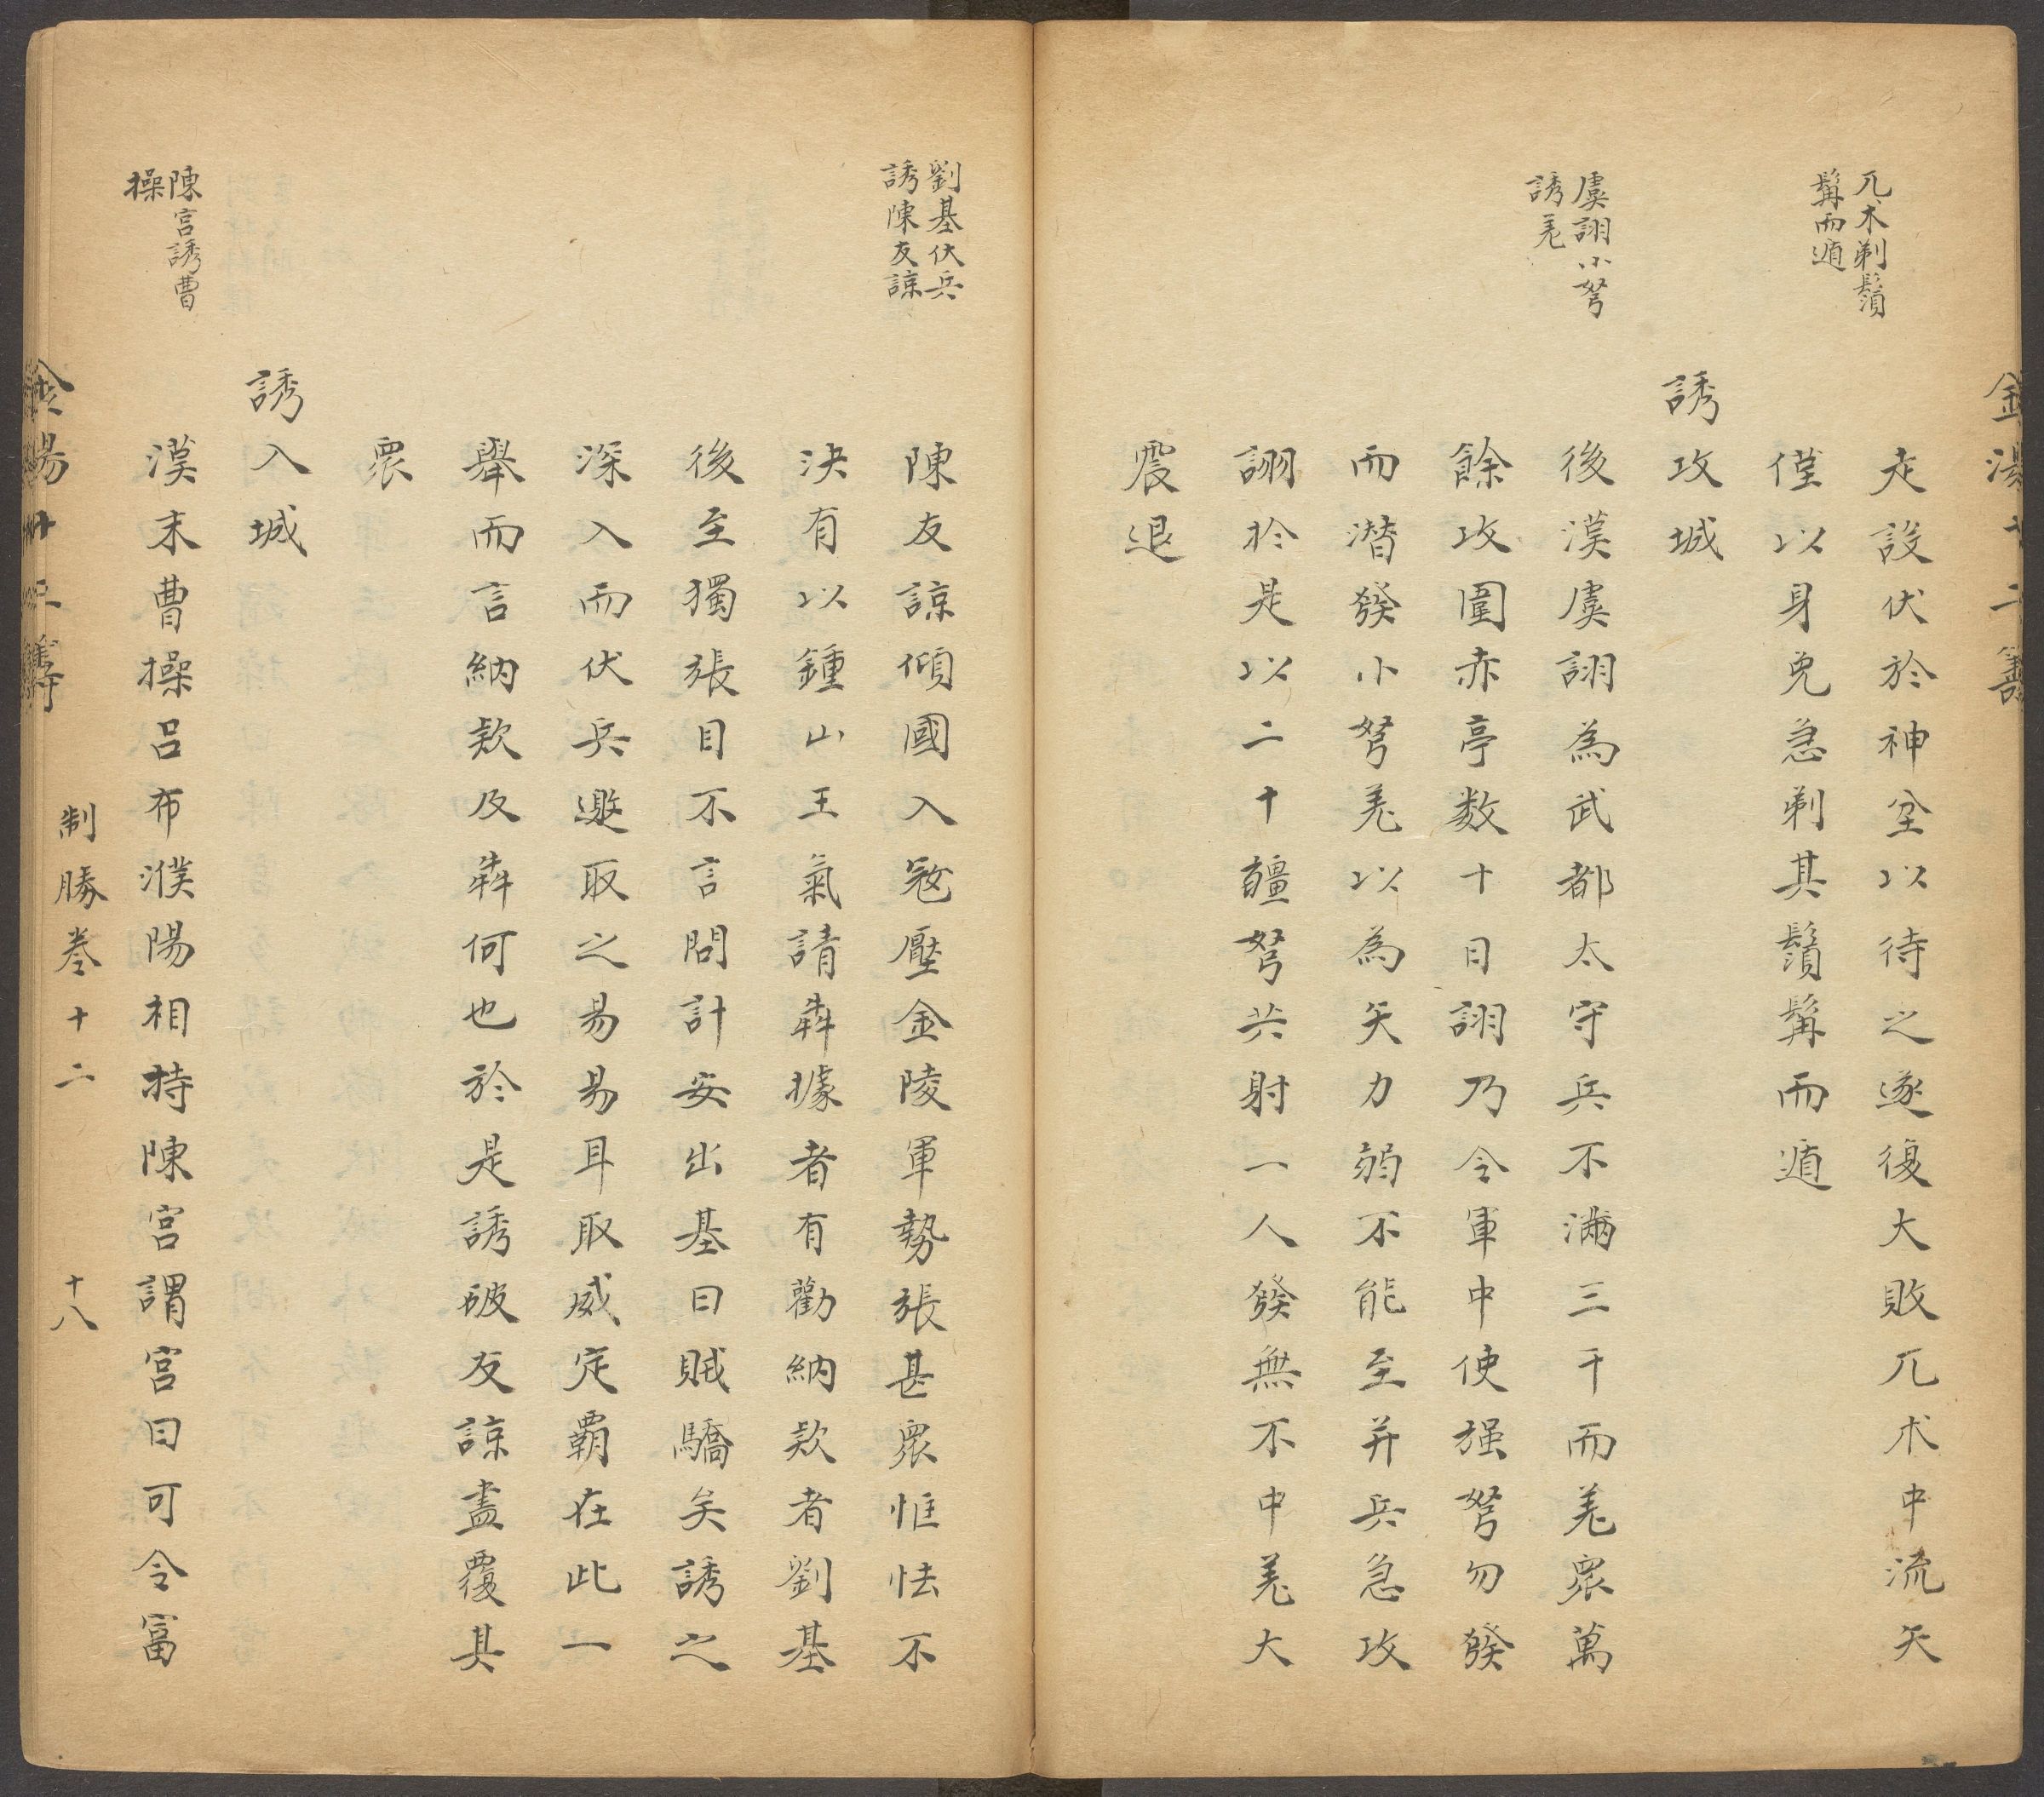 金湯十二籌
兀术剃鬚
髯而遁
走設伏於神坌以待之遂復大敗兀术中流矢
僅以身免急剃其鬚髯而遁
誘攻城
虞詡小弩
誘羌
後漢虞詡為武都太守兵不滿三千而羌眾萬
餘攻圍赤亭数十日詡乃令軍中使强弩勿發
而潛發小弩羌以為矢力弱不能至并兵急攻
詡於是以二十疆弩共射一人發無不中羌大
震退
劉基伏兵
誘陳友諒
陳友諒傾國入寇壓金陵軍勢張甚眾恇怯不
決有以鍾山王氣請犇據者有勸納欵者劉基
後至獨張目不言問計安出基曰賊驕矣誘之
深入而伏兵邀取之易易耳取威定覇在此一
舉而言納欵及犇何也於是誘破友諒盡覆其
眾
誘入城
陳宮誘曹
操
漢末曹操呂布濮陽相持陳宮謂宮曰可令富
金湯十二籌
制勝卷十二
十八